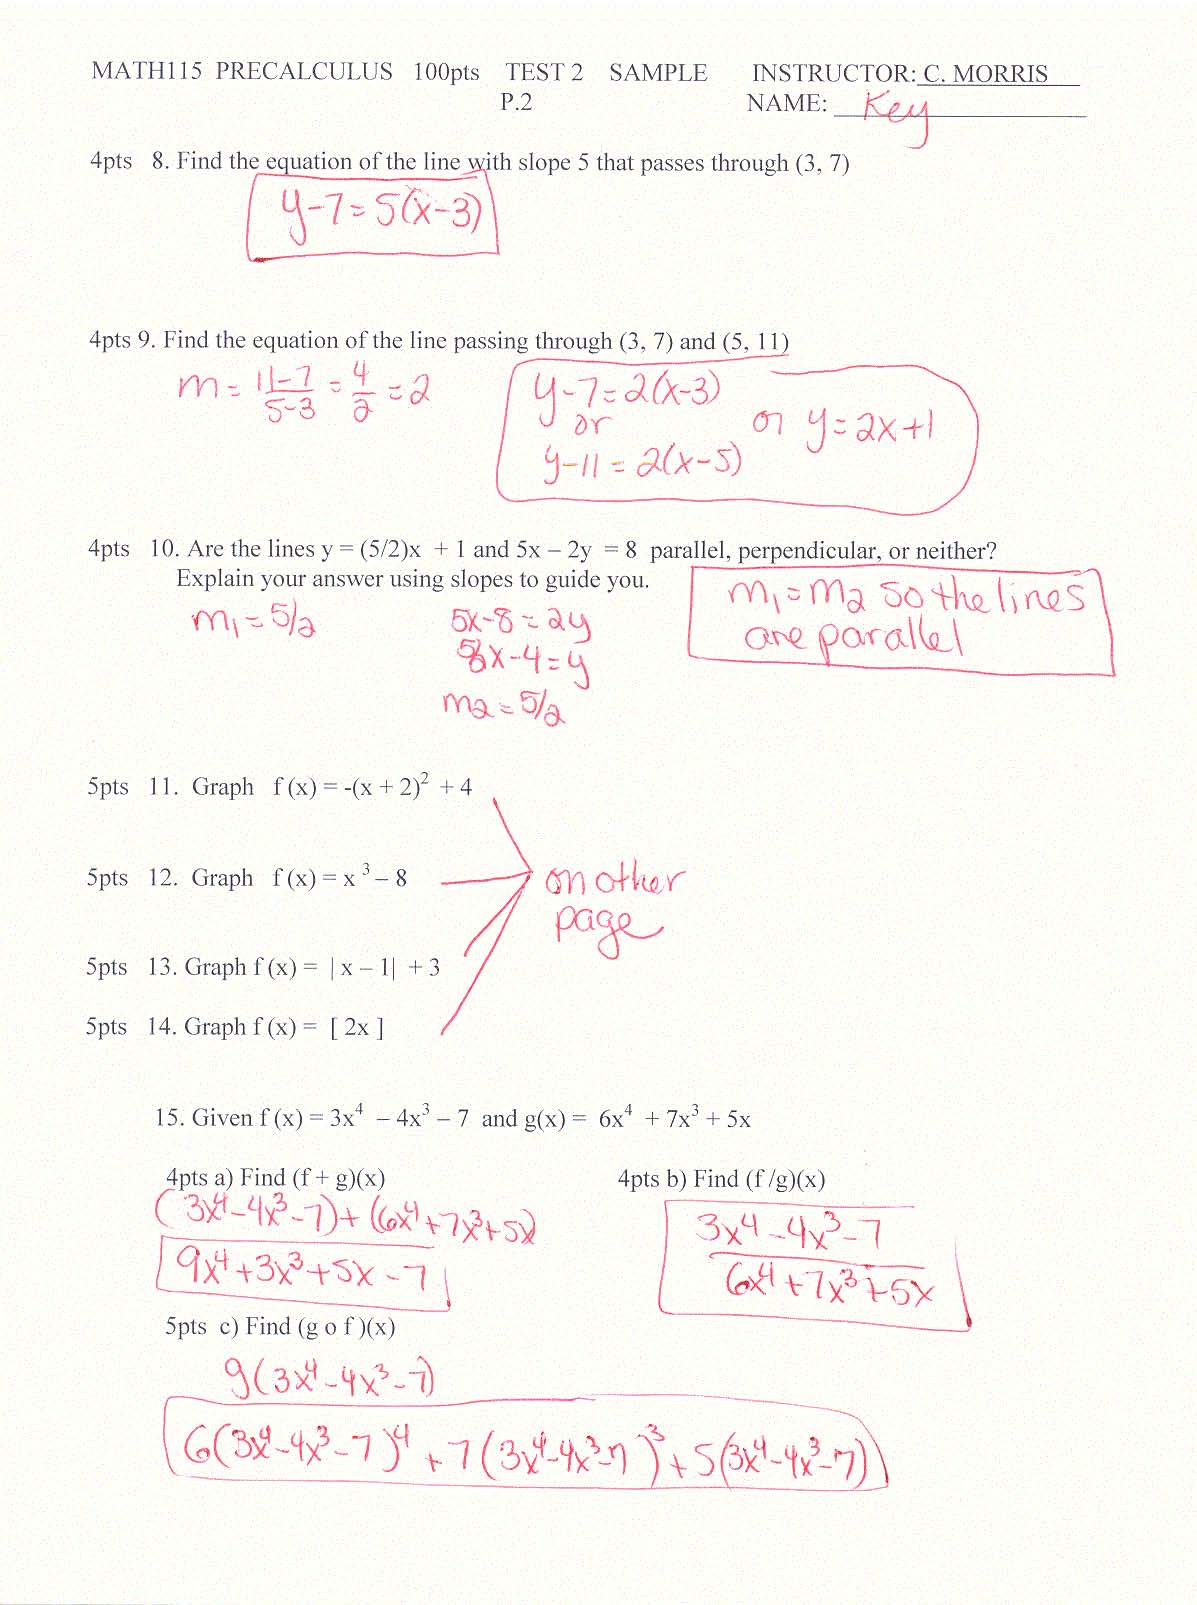 MATH115 PRECALCULUS 100pts TEST 2 SAMPLE INSTRUCTOR: C. MORRIS
P.2 NAME: Key
4pts 8. Find the equation of the line with slope 5 that passes through (3, 7)
y-7=5(x-3)
4pts 9. Find the equation of the line passing through (3, 7) and (5, 11)
m = (11-7)/(5-3) = 4/2 = 2
y-7=2(x-3)
or
y-11=2(x-5)
or y=2x+1
4pts 10. Are the lines y = (5/2)x + 1 and 5x – 2y = 8 parallel, perpendicular, or neither?
Explain your answer using slopes to guide you.
m₁=5/2
5x-8=2y
5/2x-4=y
m₂=5/2
m₁=m₂ so the lines
are parallel
5pts 11. Graph f (x) = -(x + 2)² + 4
5pts 12. Graph f (x) = x ³ – 8
on other
page
5pts 13. Graph f (x) = | x – 1| + 3
5pts 14. Graph f (x) = [ 2x ]
15. Given f (x) = 3x⁴ – 4x³ – 7 and g(x) = 6x⁴ + 7x³ + 5x
4pts a) Find (f + g)(x)
(3x⁴-4x³-7)+(6x⁴+7x³+5x)
9x⁴+3x³+5x-7
4pts b) Find (f /g)(x)
3x⁴-4x³-7
6x⁴+7x³+5x
5pts c) Find (g o f )(x)
g(3x⁴-4x³-7)
6(3x⁴-4x³-7)⁴+7(3x⁴-4x³-7)³+5(3x⁴-4x³-7)